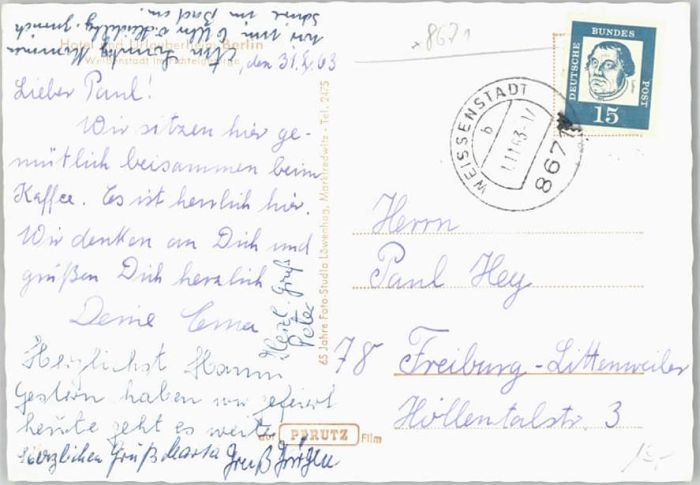 Hotel und Urlauberheim Berlin
Weißenstadt im Fichtelgebirge
den 31.X.63
Lieber Paul!
Wir sitzen hier ge-
mütlich beisammen beim
Kaffee. Es ist herrlich hier.
Wir denken an Dich und
grüßen Dich herzlich
Deine Erna
Herzl. Gruß
Peter
Herzlichst Hanni
Gestern haben wir gefeiert
heute geht es weiter
Herzlichen Gruß Marta
Gruß Jürgen
65 Jahre Foto-Studio Löwenhag, Marktredwitz - Tel. 2475
auf PERUTZ Film
8671
DEUTSCHE BUNDES POST
15
WEISSENSTADT
b
1.11.63
8671
Herrn
Paul Hey
78 Freiburg-Littenweiler
Höllentalstr. 3
15,-